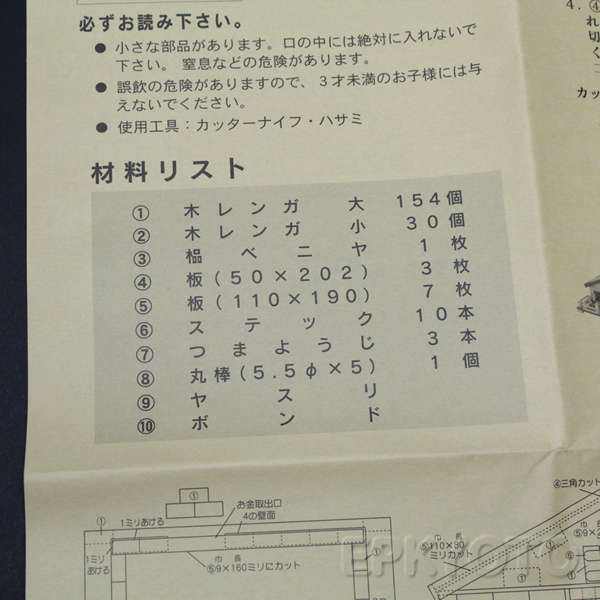 必ずお読み下さい。
● 小さな部品があります。口の中には絶対に入れないで
下さい。窒息などの危険があります。
● 誤飲の危険がありますので、３才未満のお子様には与
えないでください。
● 使用工具：カッターナイフ・ハサミ
材料リスト
① 木レンガ大 154個
② 木レンガ小 30個
③ 榀ベニヤ 1枚
④ 板(50×202) 3枚
⑤ 板(110×190) 7枚
⑥ ステック 10本
⑦ つまようじ 3本
⑧ 丸棒(5.5φ×5) 1個
⑨ ヤスリ
⑩ ボンド
4.④
れ
切
く
カッ
①
お金取出口
4の壁面
① 1ミリあける
①
1ミリ
あける
巾 長
⑤9×160ミリにカット
④三角カット
巾 長
⑤110×30
ミリカット
巾
⑤9×2
⑥
①
EPKYOTO